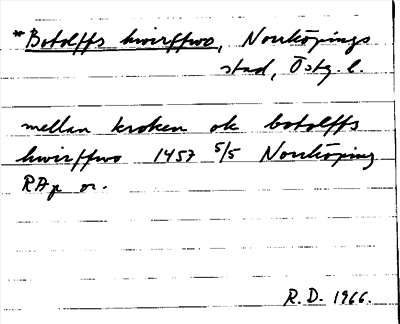 *Botolffs hwirffwo, Norrköpings
stad, Östg. l.
mellan kroken ok botolffs
hwirffwo 1457 5/5 Norrköping
RAp or.
R.D. 1966.